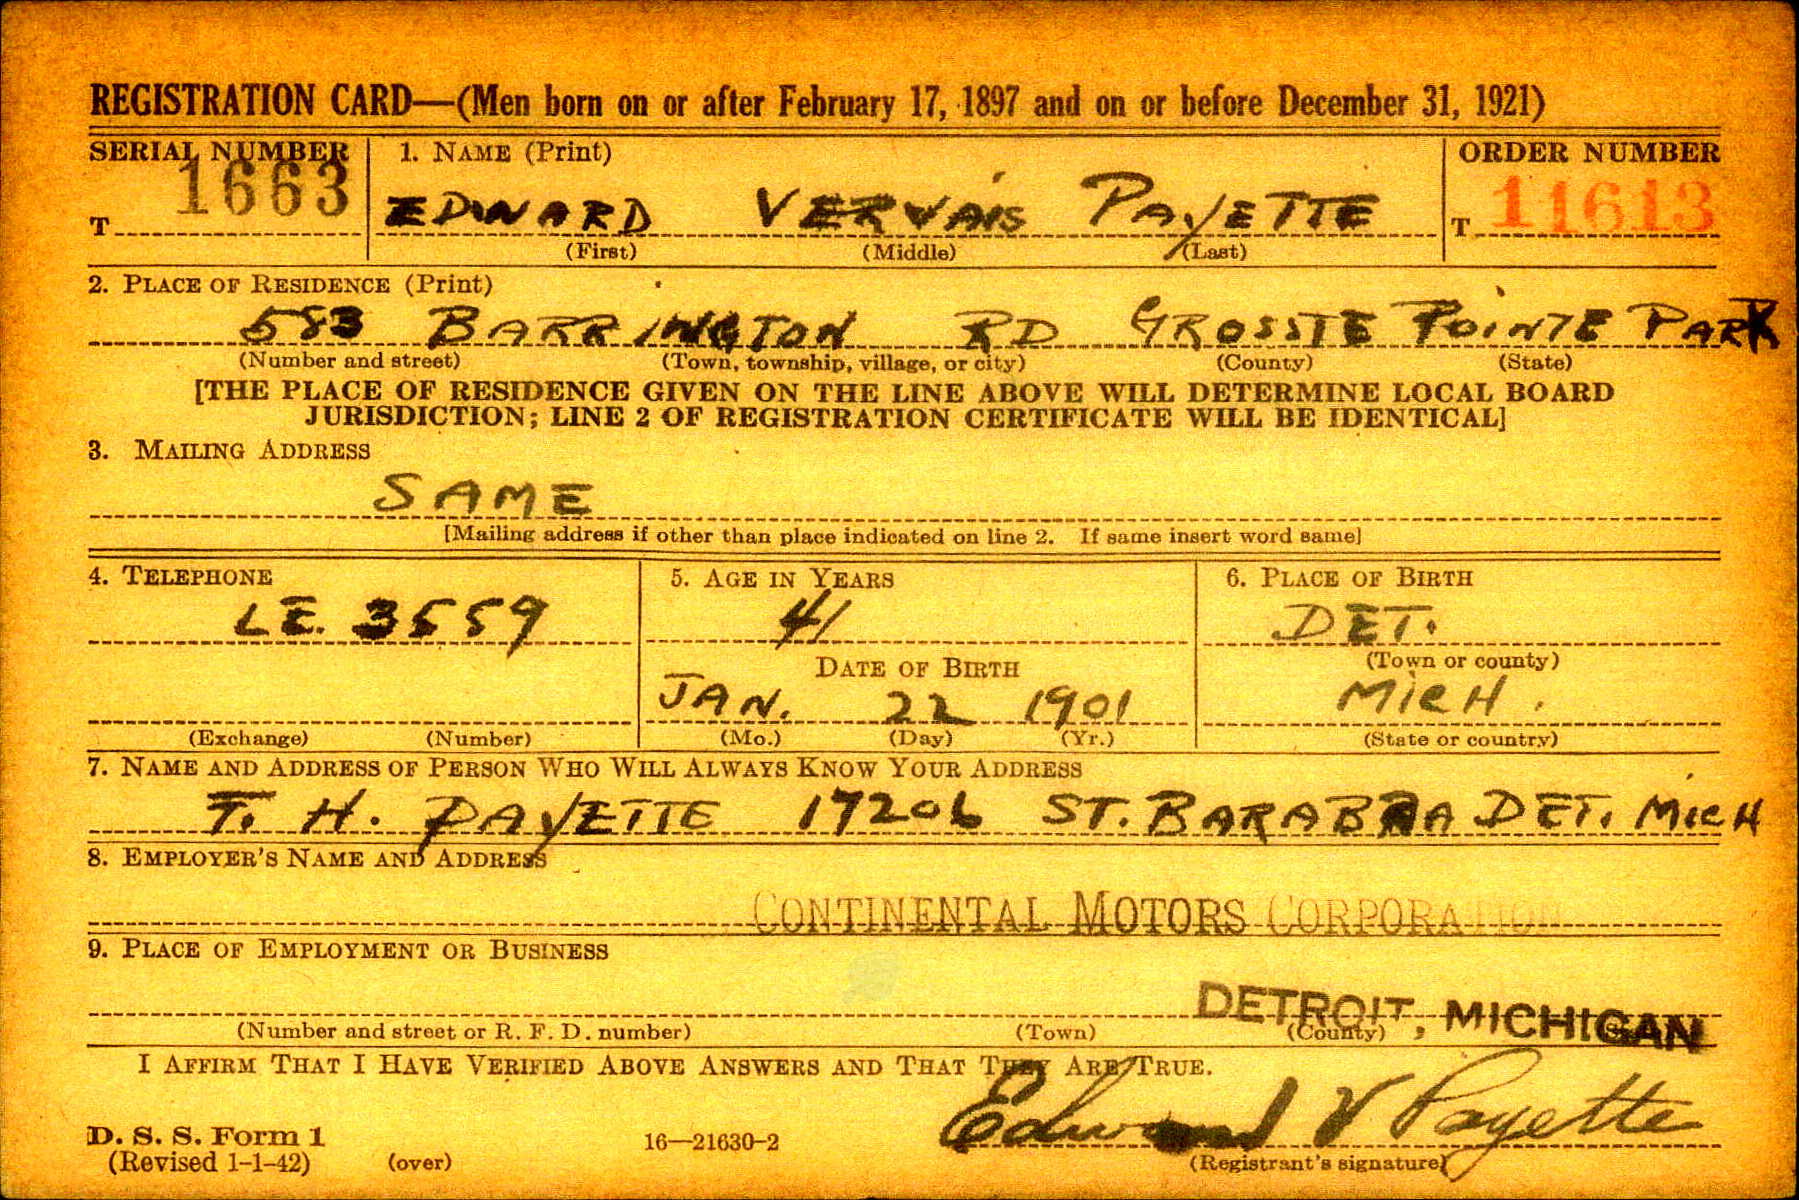 REGISTRATION CARD—(Men born on or after February 17, 1897 and on or before December 31, 1921)
SERIAL NUMBER 1. NAME (Print) ORDER NUMBER
T 1663 EDWARD VERVAIS PAYETTE T 11613
(First) (Middle) (Last)
2. PLACE OF RESIDENCE (Print)
583 BARRINGTON RD GROSSTE POINTE PARK
(Number and street) (Town, township, village, or city) (County) (State)
[THE PLACE OF RESIDENCE GIVEN ON THE LINE ABOVE WILL DETERMINE LOCAL BOARD
JURISDICTION; LINE 2 OF REGISTRATION CERTIFICATE WILL BE IDENTICAL]
3. MAILING ADDRESS
SAME
[Mailing address if other than place indicated on line 2. If same insert word same]
4. TELEPHONE 5. AGE IN YEARS 6. PLACE OF BIRTH
LE. 3559 41 DET.
DATE OF BIRTH (Town or county)
JAN. 22 1901 MICH.
(Exchange) (Number) (Mo.) (Day) (Yr.) (State or country)
7. NAME AND ADDRESS OF PERSON WHO WILL ALWAYS KNOW YOUR ADDRESS
F. H. PAYETTE 17206 ST. BARABRA DET. MICH
8. EMPLOYER'S NAME AND ADDRESS
CONTINENTAL MOTORS CORPORATION
9. PLACE OF EMPLOYMENT OR BUSINESS
DETROIT, MICHIGAN
(Number and street or R. F. D. number) (Town) (County)
I AFFIRM THAT I HAVE VERIFIED ABOVE ANSWERS AND THAT THEY ARE TRUE.
Edward V Payette
D. S. S. Form 1 16—21630-2
(Revised 1-1-42) (over) (Registrant's signature)